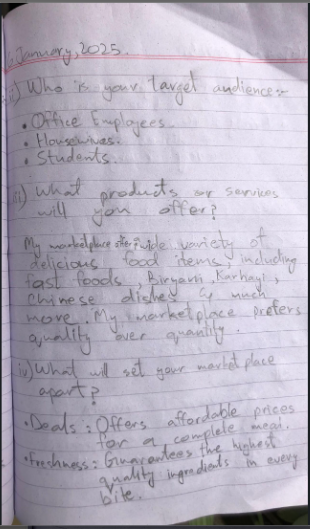 January, 2025.
ii) Who is your target audience:-
• Office Employees.
• Housewives.
• Students.
iii) What products or services
will you offer?
My marketplace offer wide variety of
delicious food items including
fast foods, Biryani, Karhayi,
Chinese dishes & much
more. My marketplace prefers
quality over quantity.
iv) What will set your market place
apart?
• Deals : Offers affordable prices
for a complete meal.
• Freshness : Guarantees the highest
quality ingredients in every
bite.